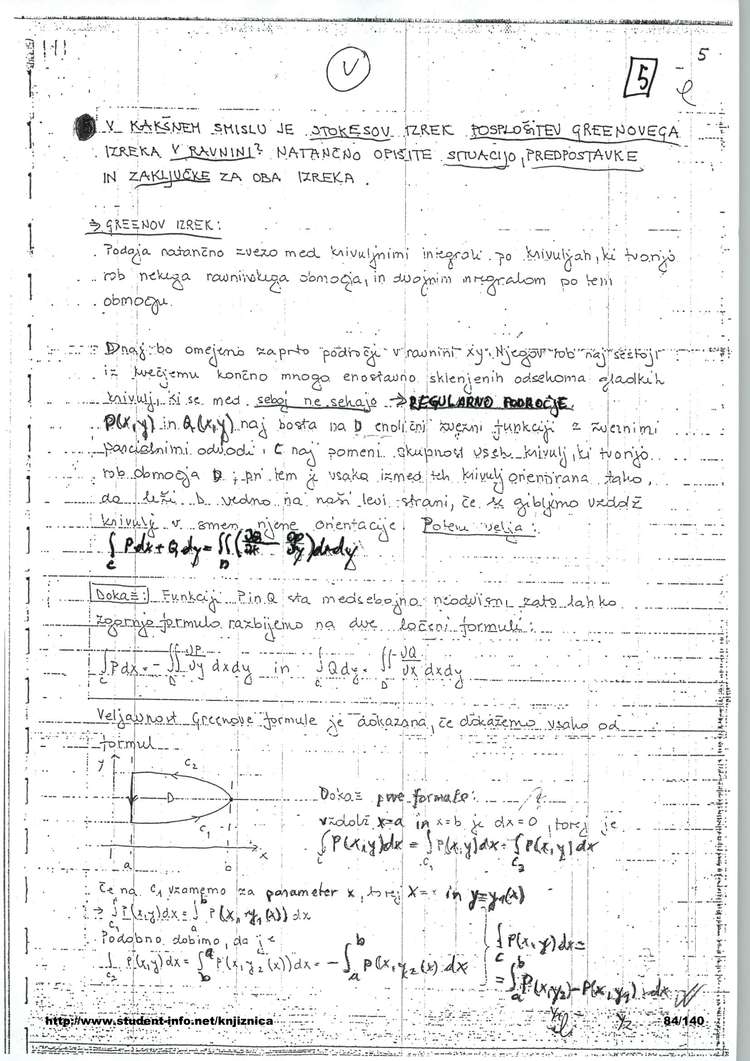 V
5
5
V KAKŠNEM SMISLU JE STOKESOV IZREK POSPLOŠITEV GREENOVEGA
IZREKA V RAVNINI? NATANČNO OPIŠITE SITUACIJO, PREDPOSTAVKE
IN ZAKLJUČKE ZA OBA IZREKA.
⇒ GREENOV IZREK:
Podaja natančno zvezo med krivuljnimi integrali po krivuljah, ki tvorijo
rob nekega ravninskega območja, in dvojnim integralom po tem
območju.
D naj bo omejeno zaprto področje v ravnini xy. Njegov rob naj sestoji
iz kvečjemu končno mnogo enostavno sklenjenih odsekoma gladkih
krivulj, ki se med seboj ne sekajo → REGULARNO PODROČJE
P(x,y) in Q(x,y) naj bosta na D enolični zvezni funkciji z zveznimi
parcialnimi odvodi. C naj pomeni skupnost vseh krivulj, ki tvorijo
rob območja D, pri tem je vsaka izmed teh krivulj orientirana tako,
da leži D vedno na naši levi strani, če se gibljemo vzdolž
krivulj v smeri njene orientacije. Potem velja:
∫_C Pdx + Qdy = ∬_D (∂Q/∂x - ∂P/∂y) dxdy
Dokaz: Funkciji P in Q sta medsebojno neodvisni, zato lahko
zgornjo formulo razbijemo na dve ločeni formuli:
∫_C Pdx = - ∬_D ∂P/∂y dxdy in ∫_C Qdy = ∬_D ∂Q/∂x dxdy
Veljavnost Greenove formule je dokazana, če dokažemo vsako od
formul
y C2
D
C1
x
a b
Dokaz prve formule:
vzdolž x=a in x=b je dx=0, torej je
∫_C P(x,y)dx = ∫_C1 P(x,y)dx + ∫_C2 P(x,y)dx
Če na C1 vzamemo za parameter x, torej x= in y=y1(x)
⇒ ∫_C1 P(x,y)dx = ∫_a^b P(x, y1(x)) dx
Podobno dobimo, da je
∫_C2 P(x,y)dx = ∫_b^a P(x,y2(x))dx = - ∫_a^b P(x,y2(x)) dx
∫_C P(x,y)dx =
= ∫_a^b P(x,y2) - P(x,y1) dx
http://www.student-info.net/knjiznica
84/140